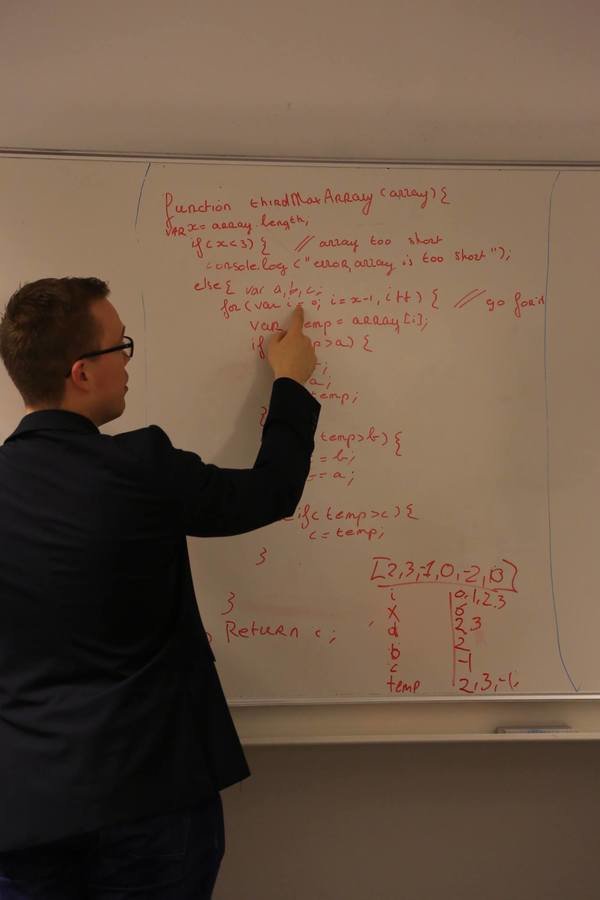 function thirdMaxArray (array) {
VAR x = array.length;
if (x<3) { // array too short
console.log ("error, array is too short");
else { var a, b, c;
for (var i = 0; i = x-1, i++) { // go
var temp = array[i];
if >a) {
;
a;
temp;
}
temp>b) {
= b;
= a;
if (temp>c) {
c = temp;
}
}
Return c;
[2,3,-1,0,-2,13]
i 0,1,2,3
X 6
a 2,3
b 2
c -1
temp 2,3,-1,